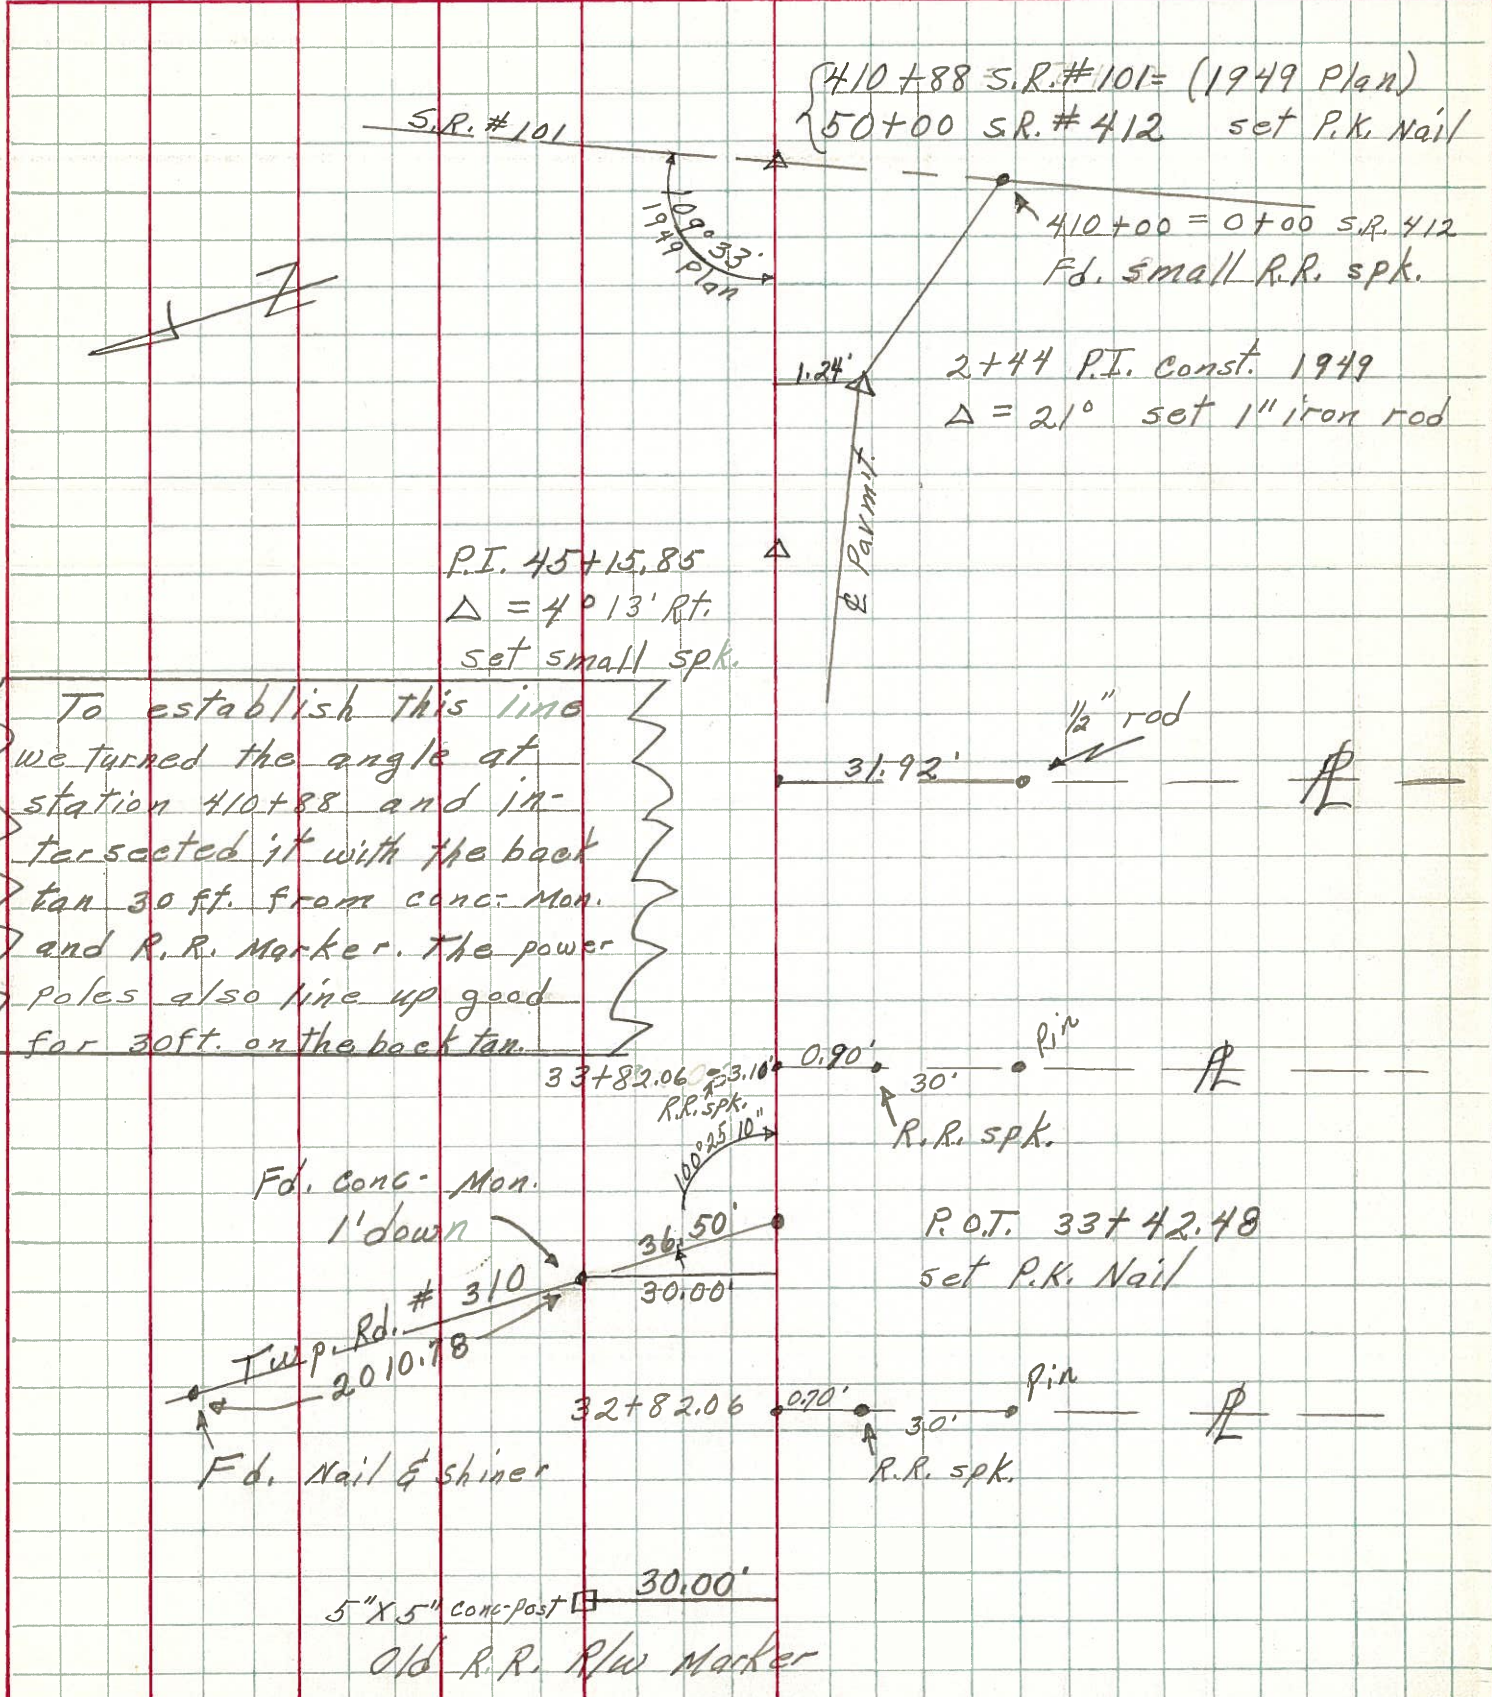 {410+88 S.R.#101= (1949 Plan)
50+00 S.R.#412 set P.K. Nail
S.R. #101
109°33'
1949 Plan
410+00 = 0+00 S.R. 412
Fd. small R.R. spk.
N
1.24'
2+44 P.I. Const. 1949
Δ = 21° set 1" iron rod
℄ Pavmt.
P.I. 45+15.85
Δ = 4°13' Rt.
set small spk.
To establish this line
we turned the angle at
station 410+88 and in-
tersected it with the back
tan 30 ft. from conc- Mon.
and R.R. Marker. The power
poles also line up good
for 30ft. on the back tan.
1/2" rod
31.92'
PL
33+82.06 3.10'
R.R. spk.
0.90'
30'
Pin
PL
R.R. spk.
100°25'10"
Fd. conc- Mon.
1' down
36.50'
30.00'
P.O.T. 33+42.48
set P.K. Nail
Twp. Rd. # 310
2010.78
Fd. Nail & shiner
32+82.06
0.70'
30'
Pin
PL
R.R. spk.
30.00'
5"X5" conc-post
Old R.R. R/W Marker